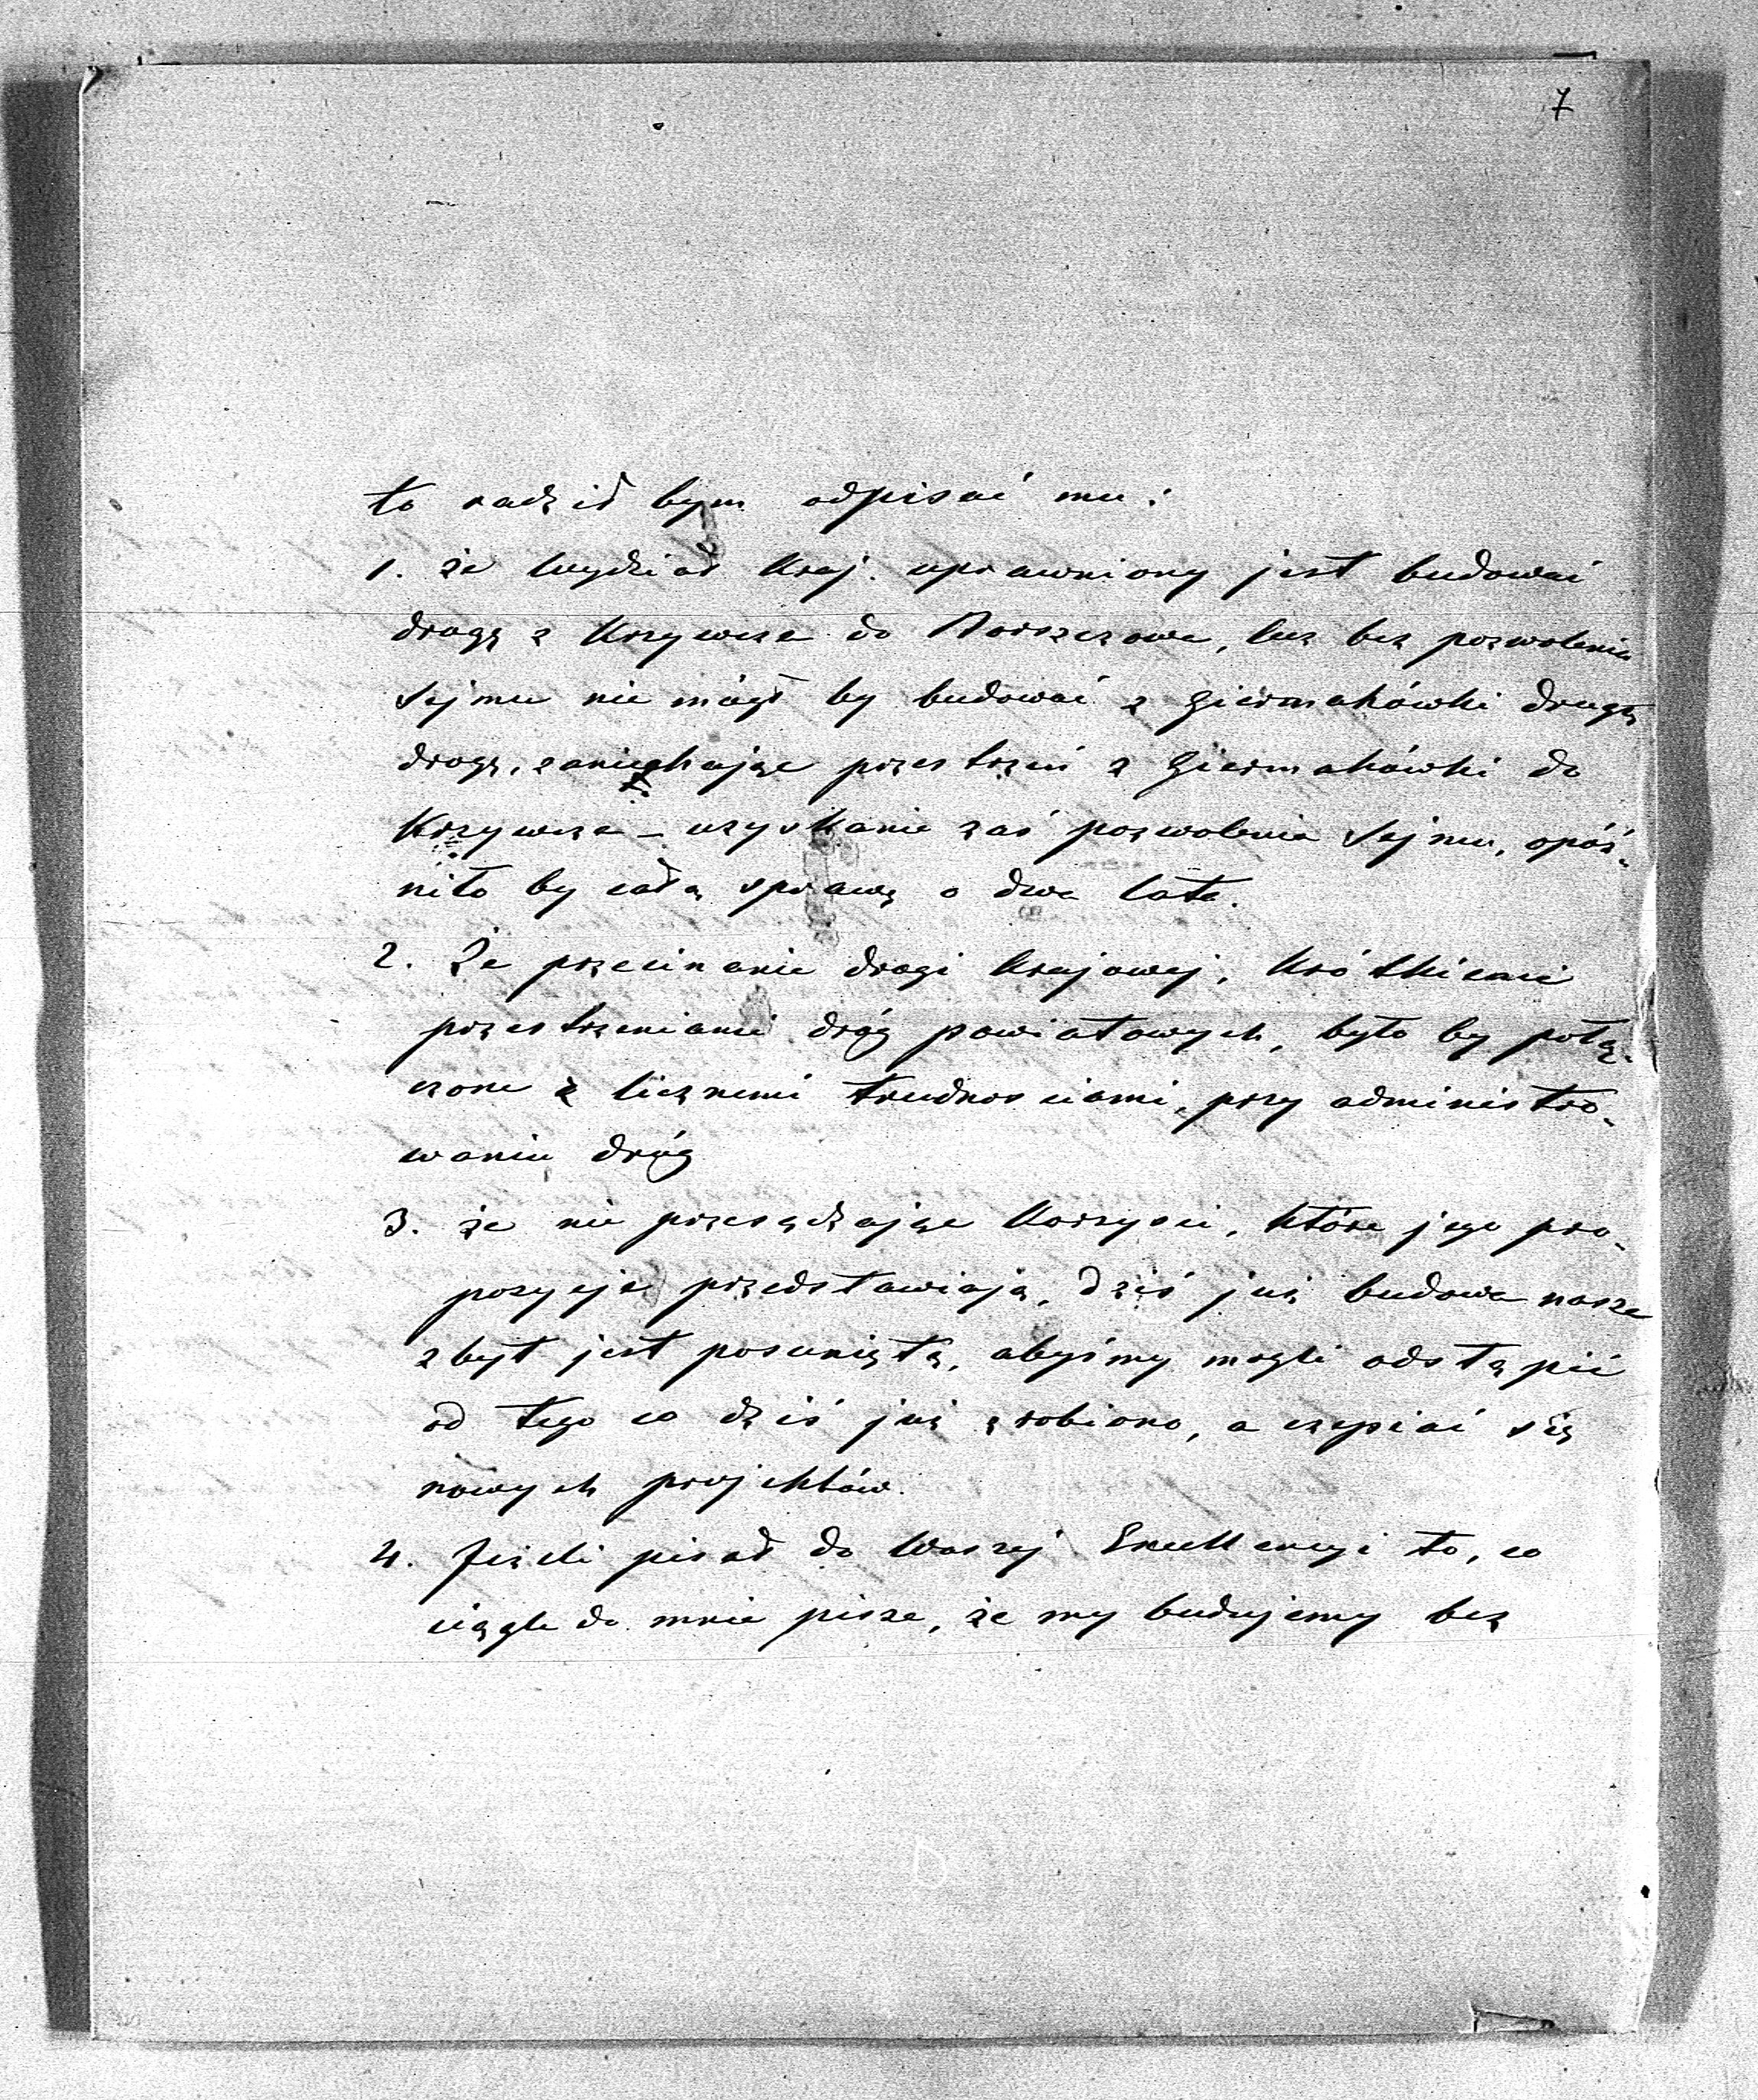 7
to radził bym odpisać mu:
1. że Wydział Kraj. uprawniony jest budować
drogę z Krzywcza do Borszczowa, lecz bez pozwolenia
Sejmu nie mógł by budować z Giermakówki drugą
drogę, zaniechając przestrzeń z Giermakówki do
Krzywcza – uzyskanie zaś pozwolenia Sejmu, opóź-
niło by całą sprawę o dwa lata.
2. Że przecinanie drogi krajowej, krótkiemi
przestrzeniami dróg powiatowych, było by połą-
czone z licznemi trudnościami, przy administro-
waniu dróg
3. że nie przesądzając korzyści, które jego pro-
pozycje przedstawiają, dziś już budowa nasza
zbyt jest posuniętą, abyśmy mogli odstąpić
od tego co dziś już zrobiono, a czepiać się
nowych projektów.
4. Jeżeli pisał do Waszej Excellencyi to, co
ciągle do mnie pisze, że my budujemy bez